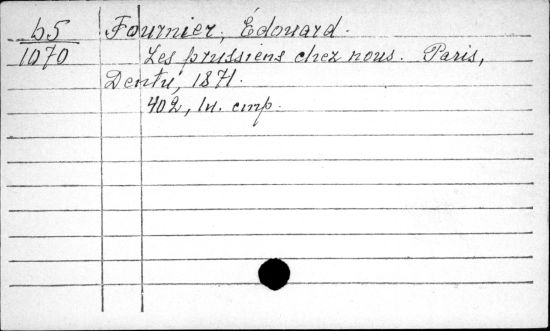 b5 Fournier, Édouard.
1070 Les prussiens chez nous. Paris,
Dentu, 1871.
402, 1u. cmp.